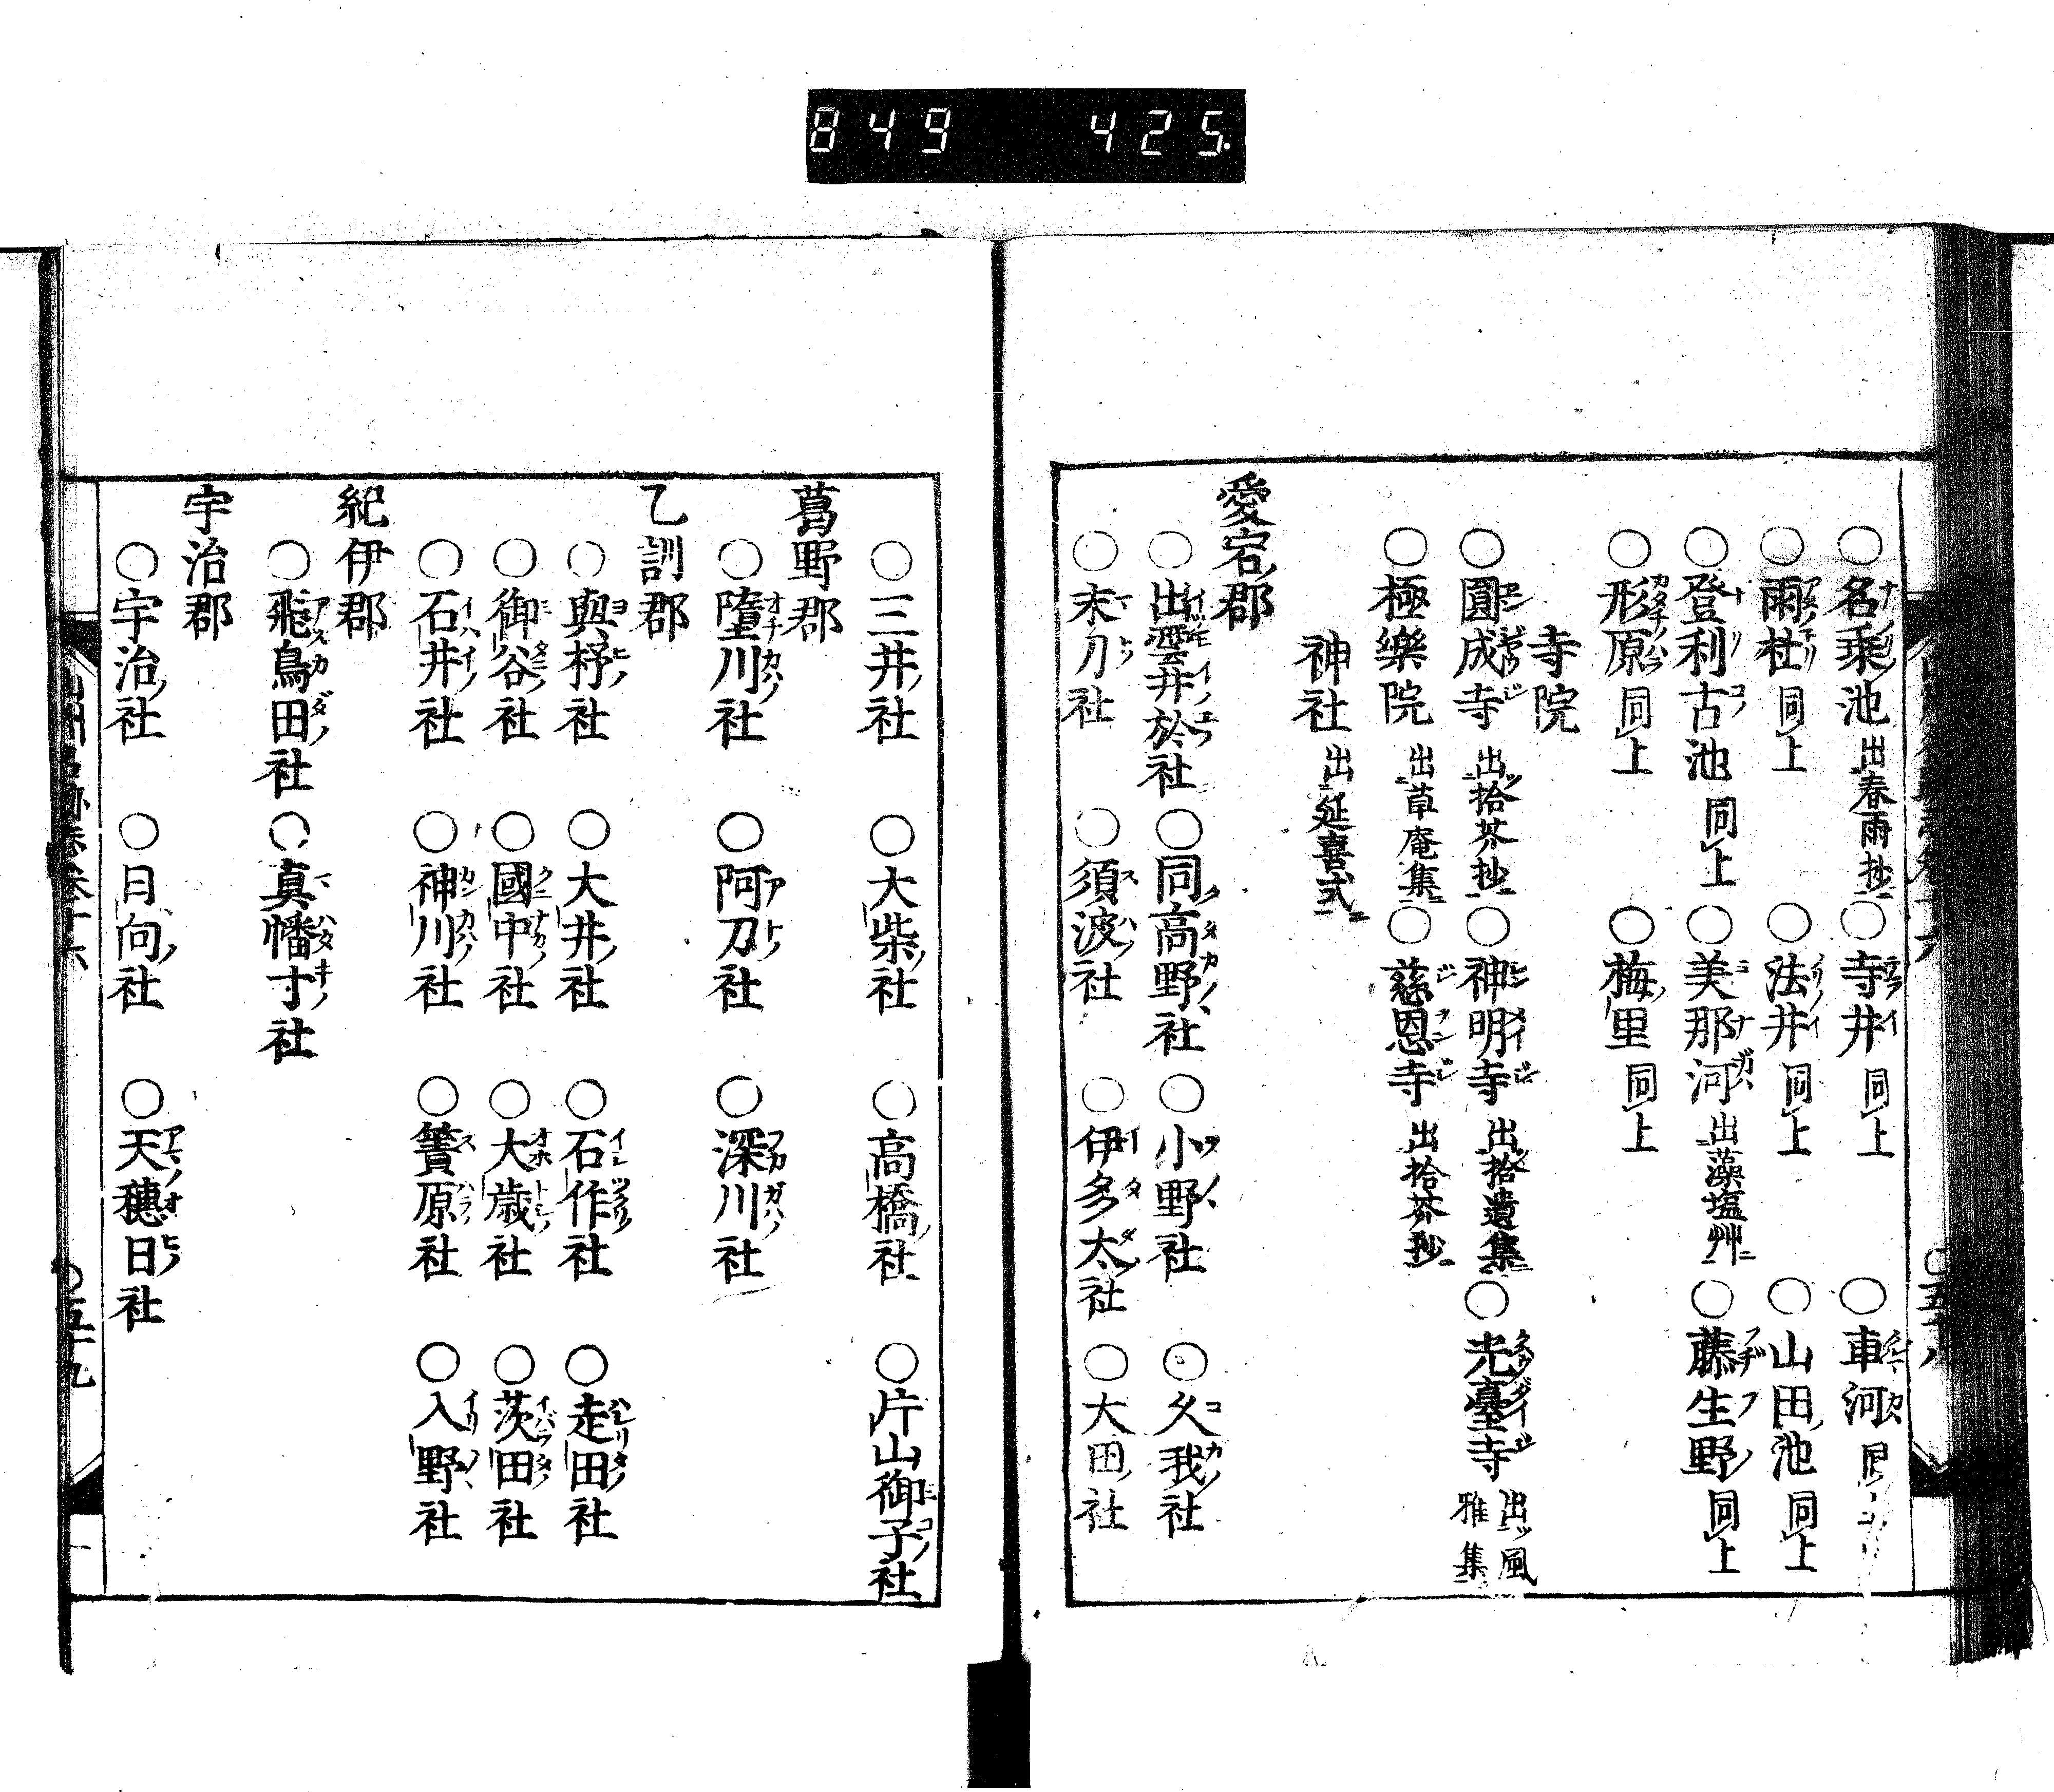 849 425.
○名乗池 出春雨抄 ○寺井 同上 ○車河
○雨社 同上 ○法井 同上 ○山田池 同上
○登利古池 同上 ○美那河 出藻塩艸 ○藤生野 同上
○形原 同上 ○梅里 同上
寺院
○圓成寺 出拾芥抄 ○神明寺 出拾遺集 ○光臺寺 出風雅集
○極樂院 出草庵集 ○慈恩寺 出拾芥抄
神社 出延喜式
愛宕郡
○出雲井於社 ○同高野社 ○小野社 ○久我社
○末刀社 ○須波社 ○伊多太社 ○大田社
○三井社 ○大柴社 ○高橋社 ○片山御子社
葛野郡
○墮川社 ○阿刀社 ○深川社
乙訓郡
○與杼社 ○大井社 ○石作社 ○走田社
○御谷社 ○國中社 ○大歳社 ○茨田社
○石井社 ○神川社 ○簀原社 ○入野社
紀伊郡
○飛鳥田社 ○真幡寸社
宇治郡
○宇治社 ○日向社 ○天穗日社
○五十九